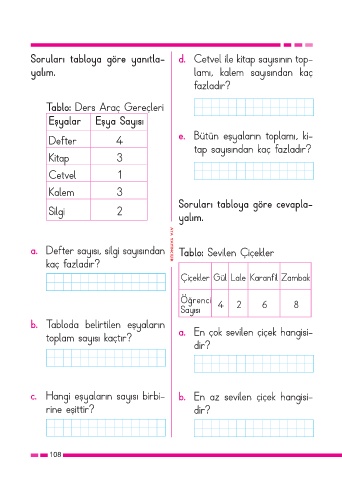 Soruları tabloya göre yanıtla-
yalım.
Tablo: Ders Araç Gereçleri
Eşyalar Eşya Sayısı
Defter 4
Kitap 3
Cetvel 1
Kalem 3
Silgi 2
a. Defter sayısı, silgi sayısından
kaç fazladır?
b. Tabloda belirtilen eşyaların
toplam sayısı kaçtır?
c. Hangi eşyaların sayısı birbi-
rine eşittir?
d. Cetvel ile kitap sayısının top-
lamı, kalem sayısından kaç
fazladır?
e. Bütün eşyaların toplamı, ki-
tap sayısından kaç fazladır?
Soruları tabloya göre cevapla-
yalım.
Tablo: Sevilen Çiçekler
Çiçekler Gül Lale Karanfil Zambak
Öğrenci
Sayısı 4 2 6 8
a. En çok sevilen çiçek hangisi-
dir?
b. En az sevilen çiçek hangisi-
dir?
108